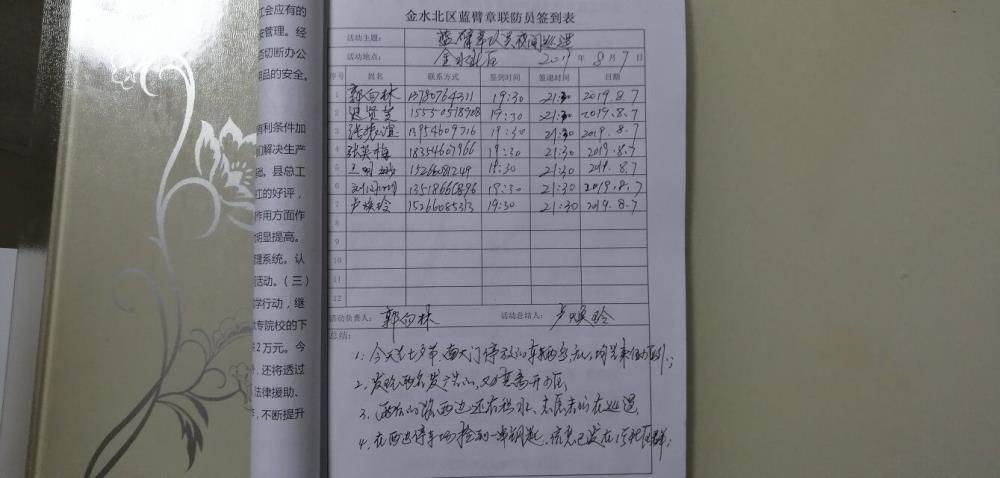 金水北区蓝臂章联防员签到表
活动主题: 蓝臂章队员夜间巡逻
活动地点: 金水北区 2019 年 8 月 7 日
序号 姓名 联系方式 签到时间 签退时间 日期
1 郭向林 13780764311 19:30 21:30 2019.8.7
2 贤 15550518908 19:30 21:30 2019.8.7
3 张振谊 13954609716 19:30 21:30 2019.8.7
4 张英梅 18354607966 19:30 21:30 2019.8.7
5 15266081249 19:30 21:30 2019.8.7
6 刘 13518666896 19:30 21:30 2019.8.7
7 卢焕玲 15266085313 19:30 21:30 2019.8.7
8
9
10
11
12
活动负责人: 郭向林 活动总结人: 卢焕玲
总结:
1、今天是七夕节,南大门停放的车辆
2、发现两名发广告的,离开小区
3、路西边还有积水,在巡逻
4、在西边停车场捡到一串钥匙,信息已发在群;
江会应有的
安管理。经
志切断办公
品的安全。
有利条件加
们解决生产
础。县总工
工的好评,
作用方面作
明显提高。
理系统。认
活动。(三)
学行动,继
大专院校的下
2万元。今
,还将透过
法律援助、
,不断提升